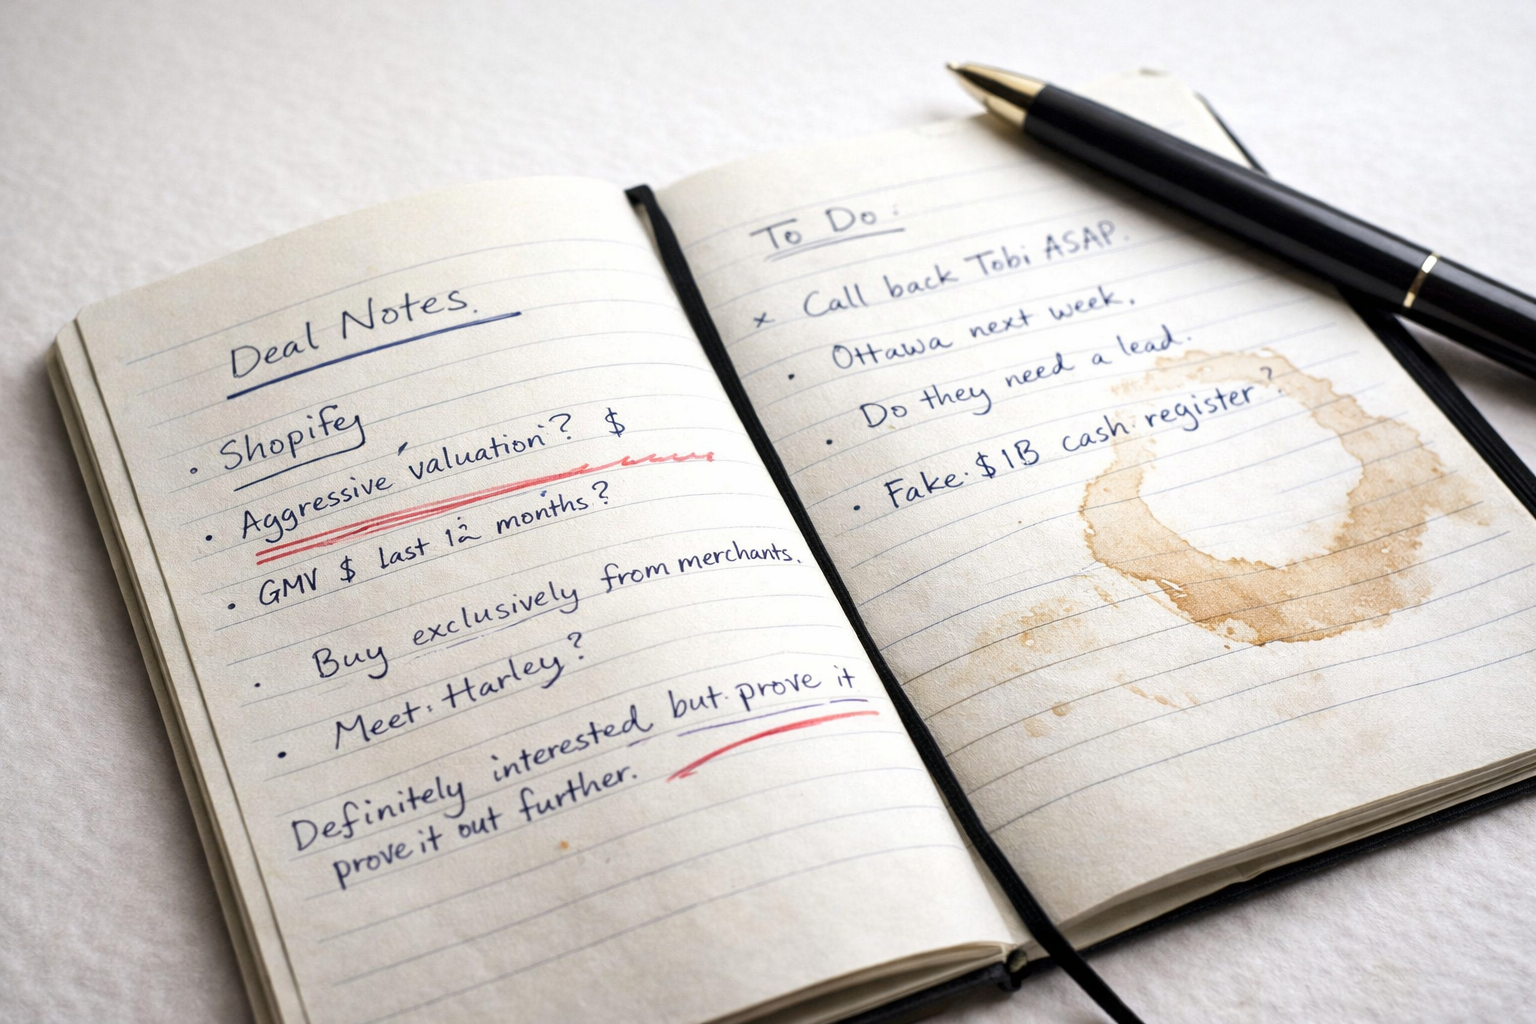 Deal Notes.
• Shopify
• Aggressive valuation? $
• GMV $ last 12 months?
• Buy exclusively from merchants.
• Meet. Harley?
Definitely interested but prove it
prove it out further.
To Do:
x Call back Tobi ASAP.
• Ottawa next week.
• Do they need a lead.
• Fake $1B cash register?